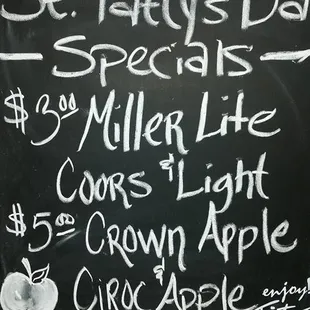 St. Patty's Da
Specials
$3.00 Miller Lite
&
Coors Light
$5.00 Crown Apple
&
Ciroc Apple
enjoy!